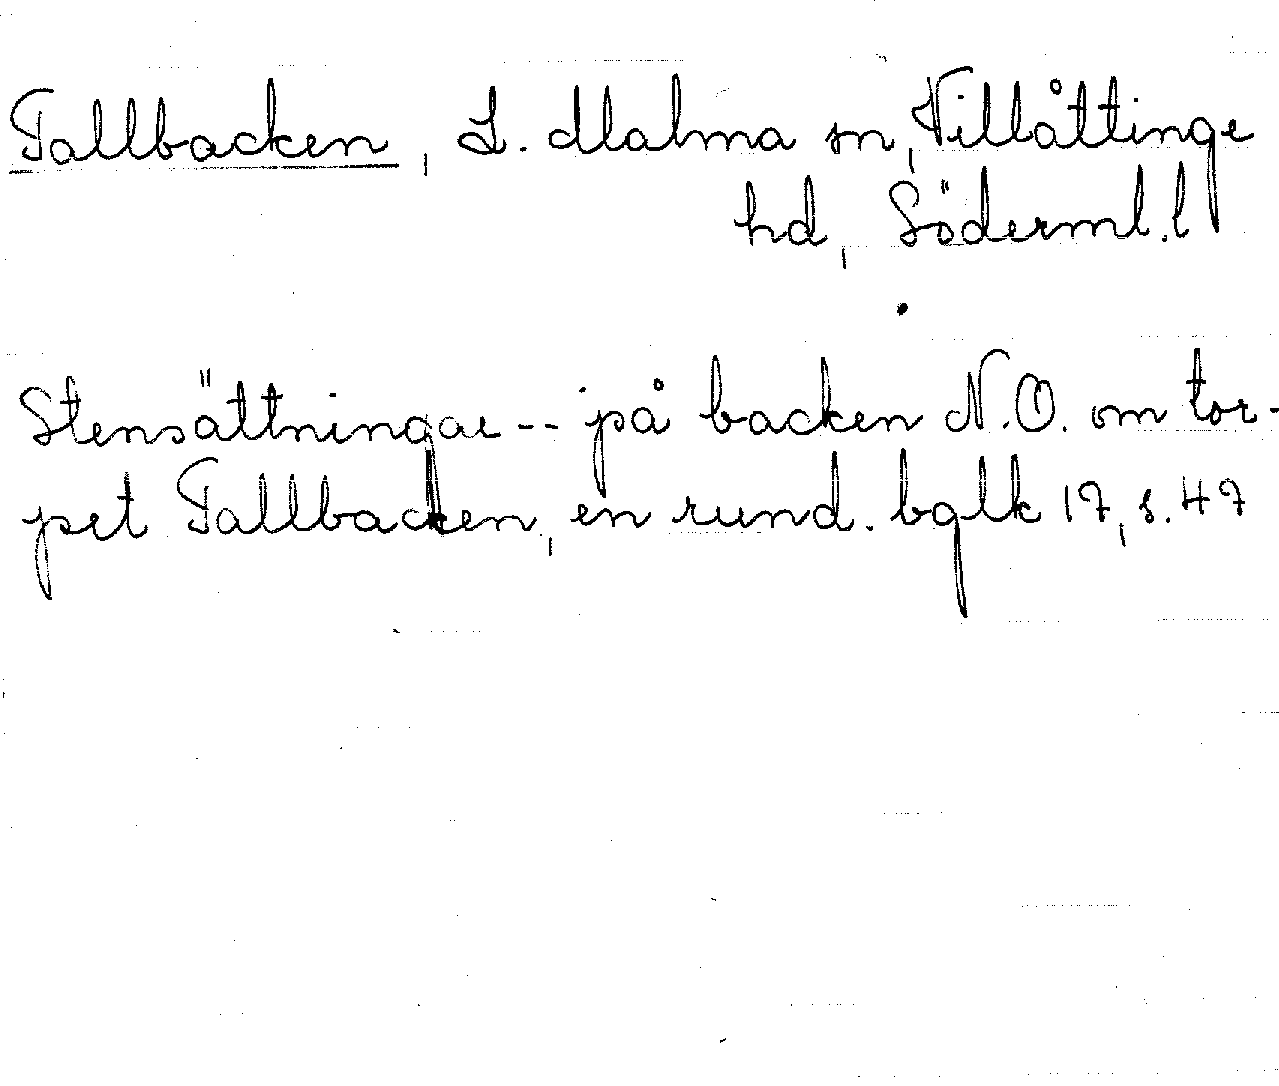 Tallbacken, L. Malma sn, Villåttinge
hd, Söderml. l
Stensättningar -- på backen N.O. om tor-
pet Tallbacken, en rund. bglk 17, s. 47